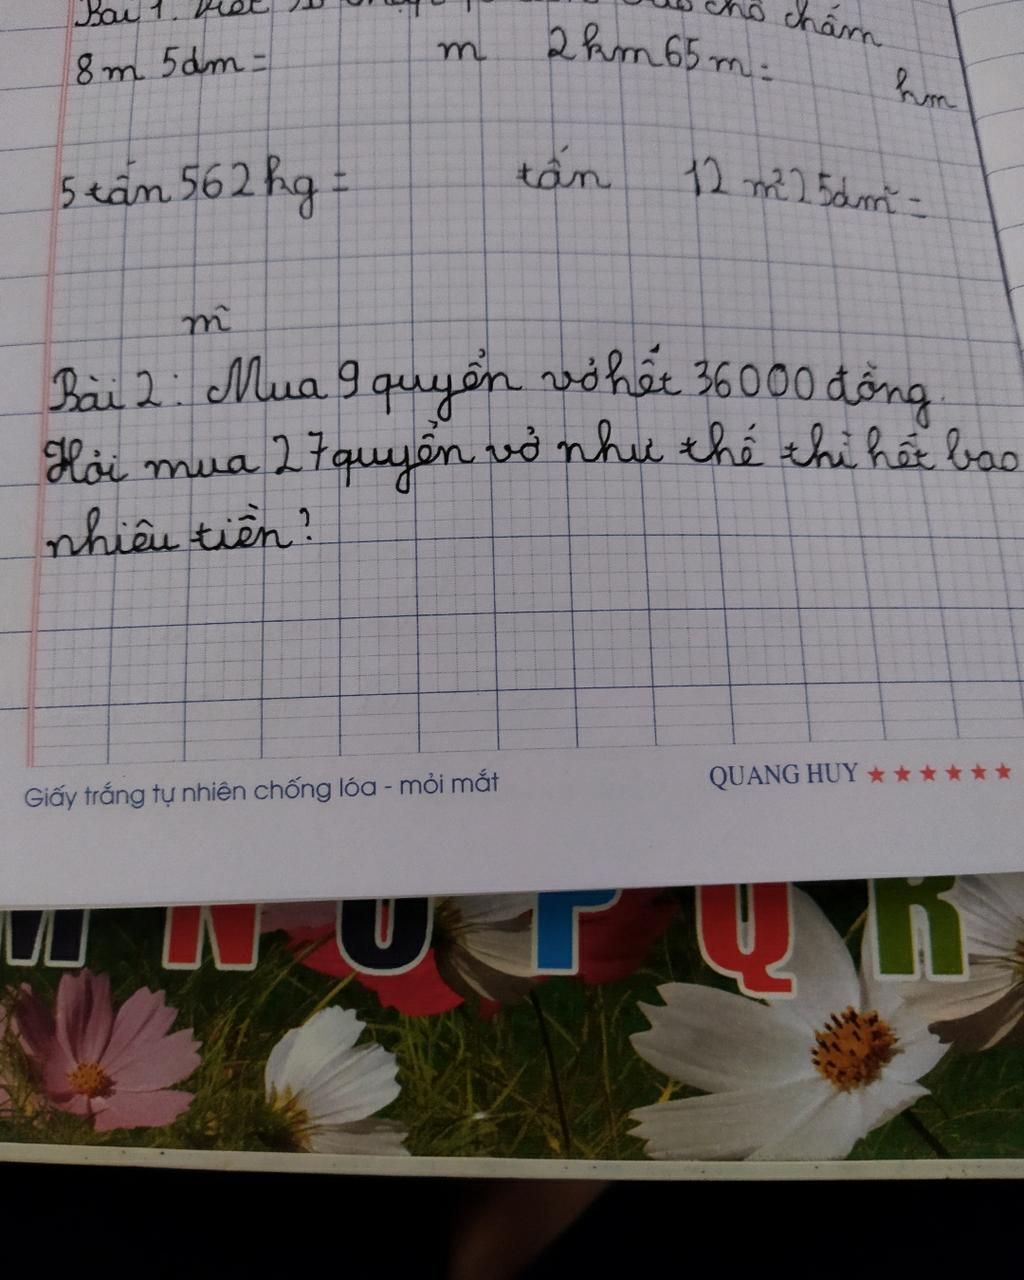 Bài 1. Viết chỗ chấm
8m 5dm = m 2km 65m = km
5 tấn 562kg = tấn 12 m² 25dm² =
m²
Bài 2: Mua 9 quyển vở hết 36000 đồng.
Hỏi mua 27 quyển vở như thế thì hết bao
nhiêu tiền?
Giấy trắng tự nhiên chống lóa - mỏi mắt QUANG HUY ★★★★★★
M N O P Q R